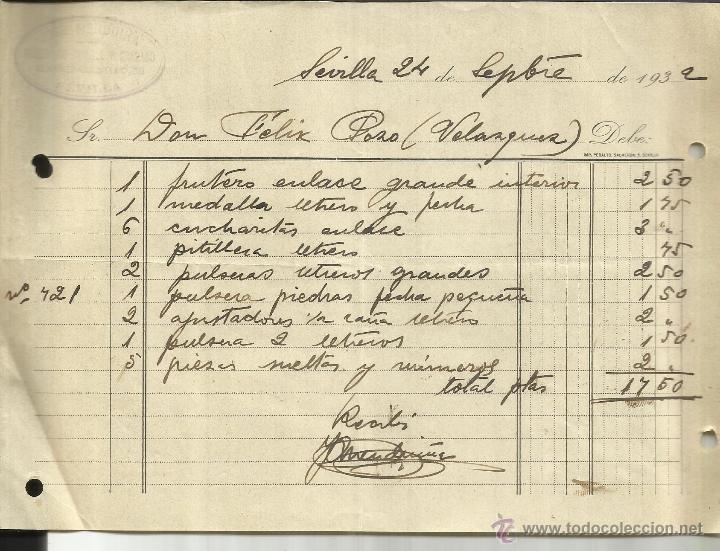 Sevilla 24 de Sepbre de 1932
Sr. Don Félix Pozo (Velazquez) Debe:
IMP. PERALTO, SALVADOR, 5. SEVILLA
1 frutero enlace grande interior 2 50
1 medalla letrero y fecha 1 75
6 cucharitas enlace 3 "
1 pitillera letrero 75
2 pulseras letreros grandes 2 50
nº 421 1 pulsera piedras fecha pequeña 1 50
2 ajustadores 1/2 caña letrero 2 "
1 pulsera 2 letreros 1 50
5 piezas sueltas y números 2 "
total ptas 17 50
Recibí
www.todocoleccion.net